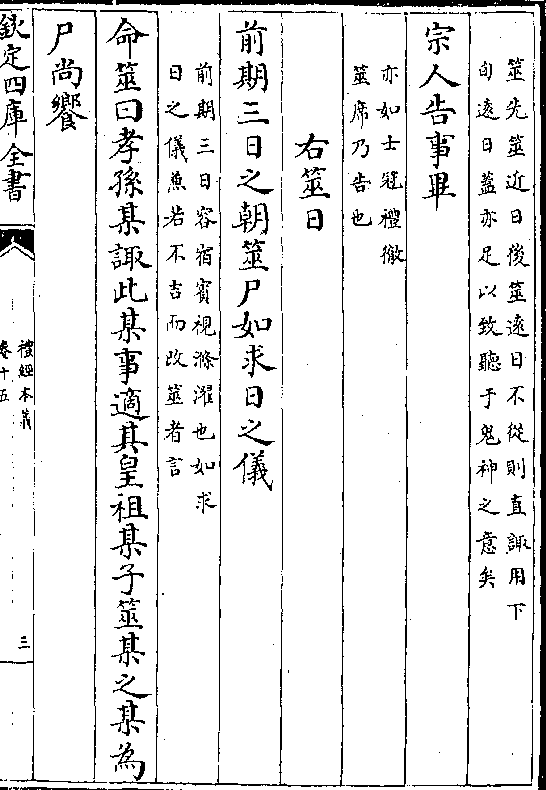 筮先筮近日後筮遠日不從則直諏用下
旬遠日蓋亦足以致聽于鬼神之意矣
宗人告事畢
亦如士冠禮徹
筮席乃告也
右筮日
前期三日之朝筮尸如求日之儀
前期三日容宿賓視滌濯也如求
日之儀兼若不吉而改筮者言
命筮曰孝孫某諏此某事適其皇祖某子筮某之某為
尸尚饗
欽定四庫全書
禮經本義
卷十五
三